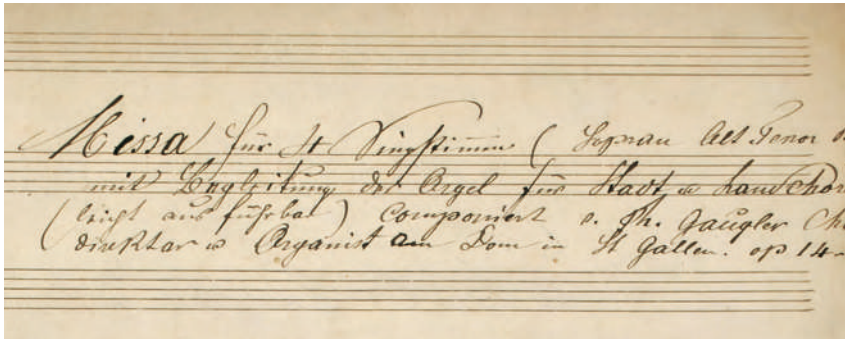 Missa für 4 Singstimmen ( Sopran Alt Tenor
mit Begleitung der Orgel für Stadt u Landchor
(leicht ausführbar) componiert v. Th. Gaugler Ch
direktor u Organist am Dom in St Gallen. op 14